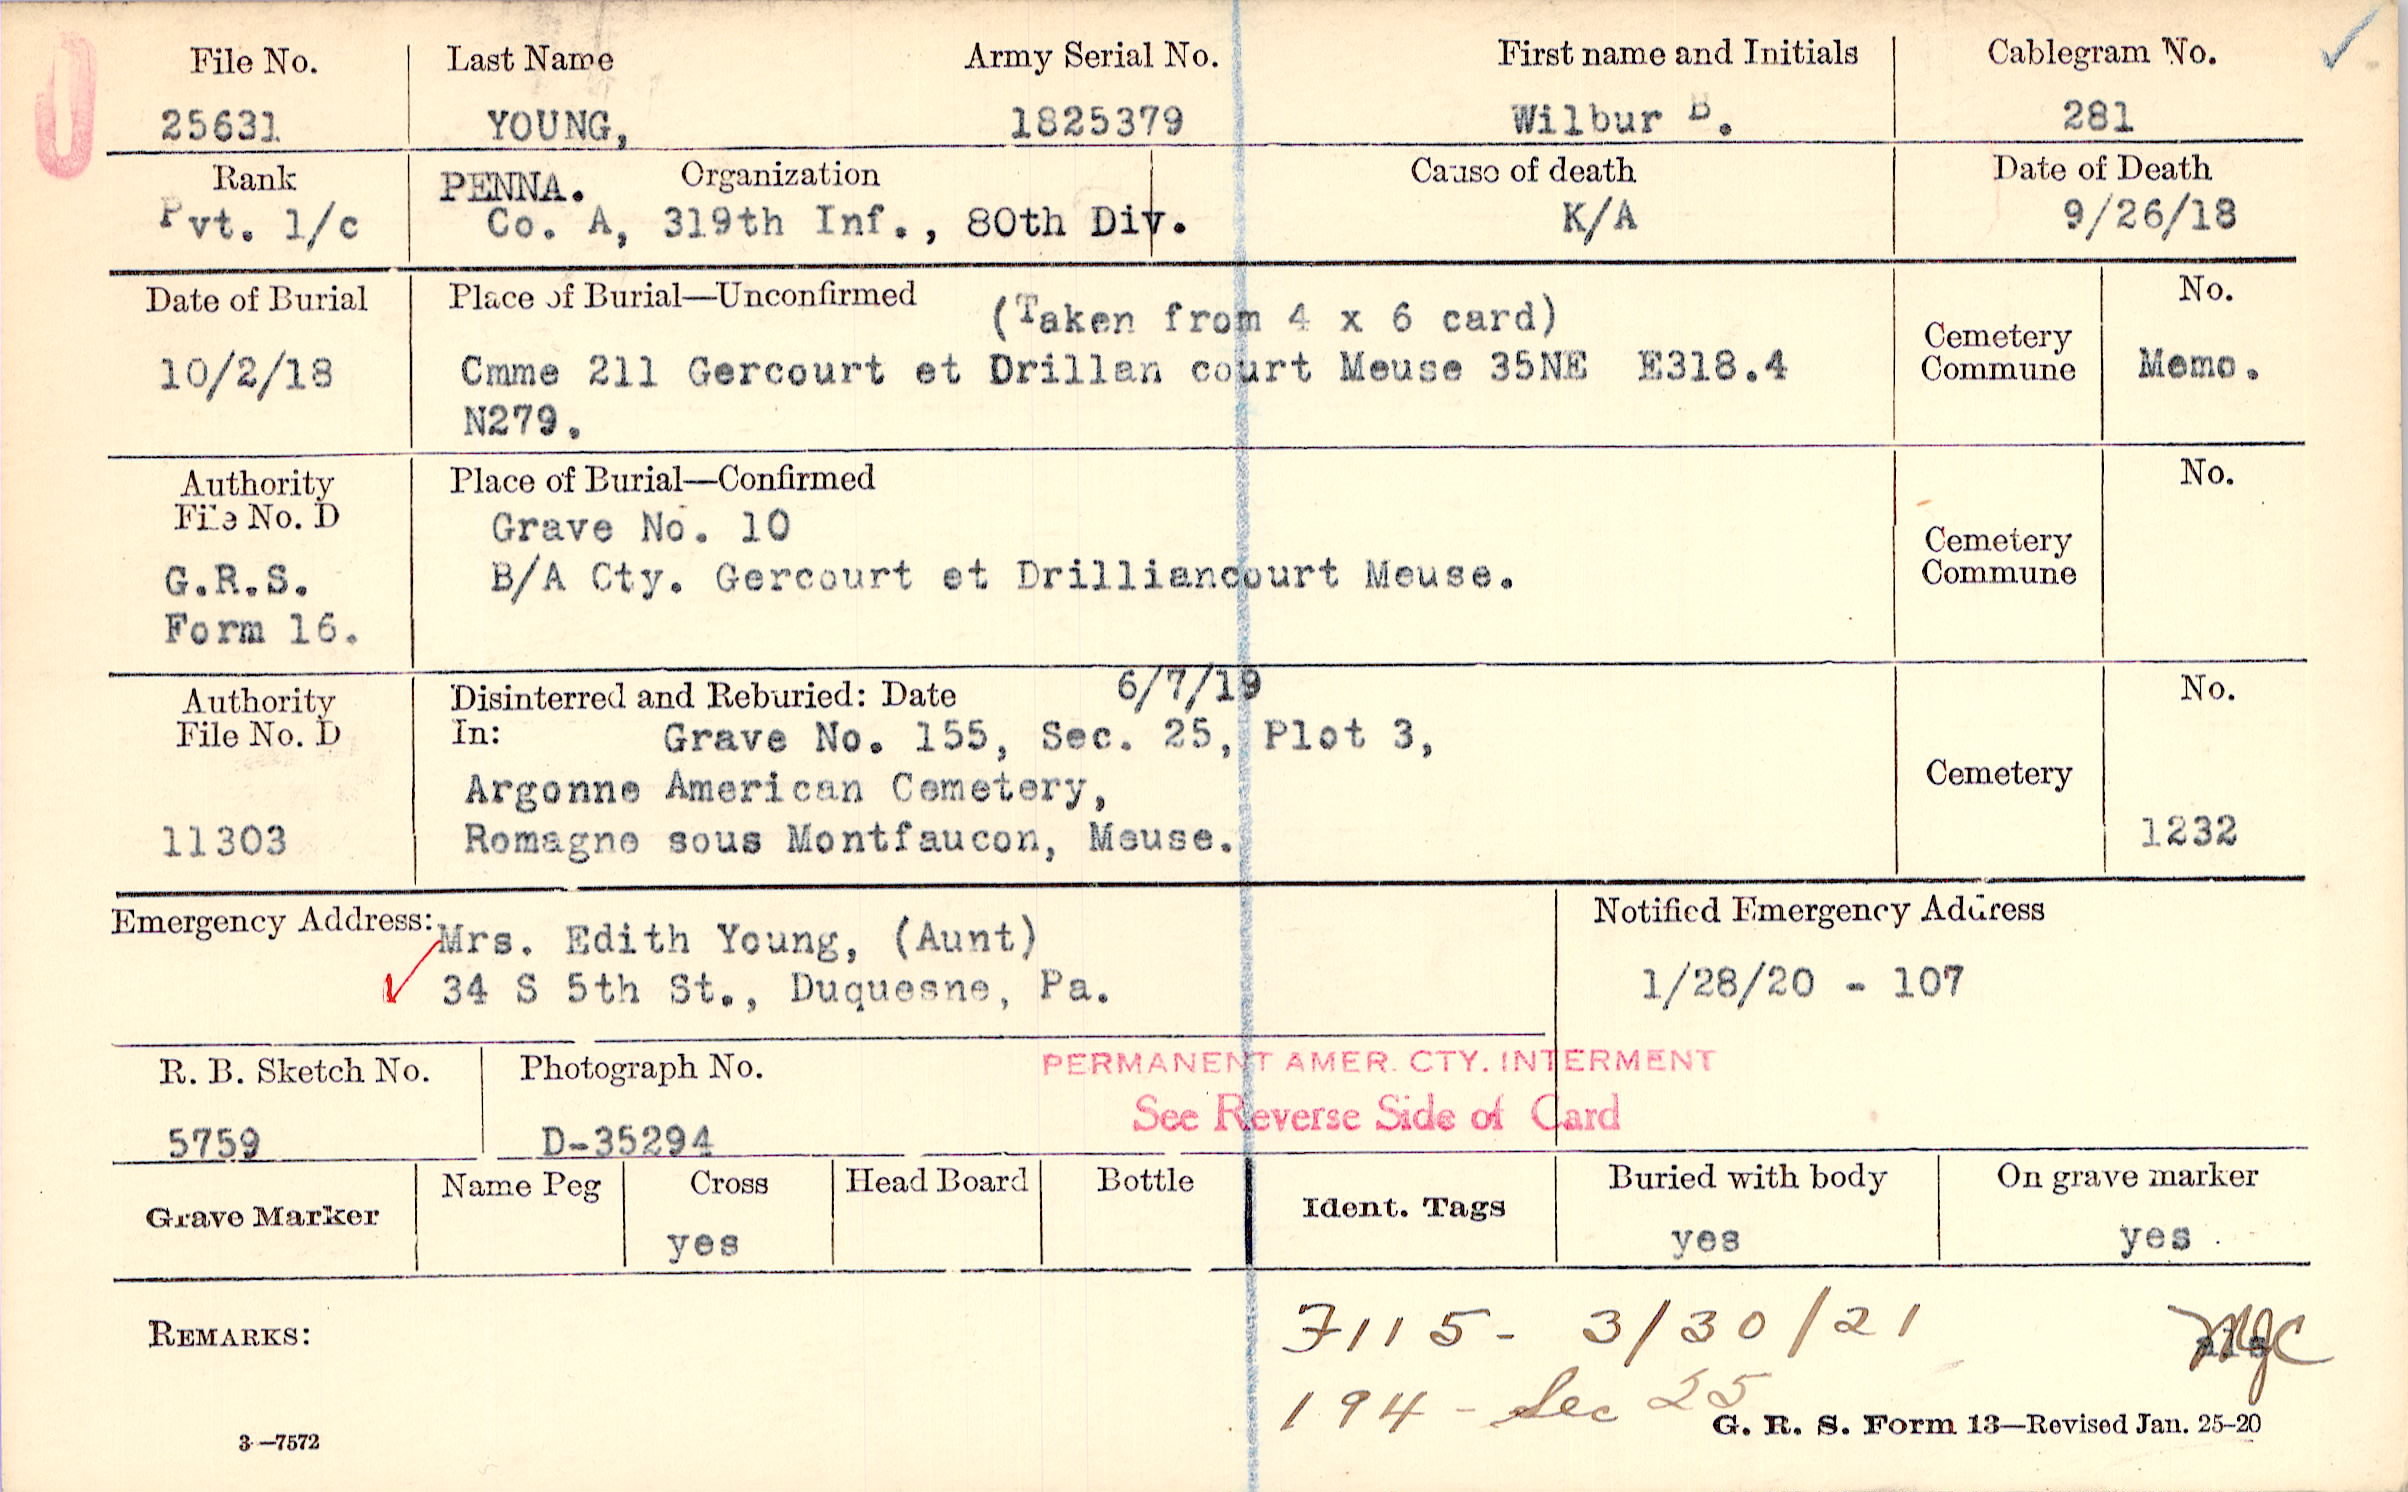 File No. Last Name Army Serial No. First name and Initials Cablegram No.
25631 YOUNG, 1825379 Wilbur B. 281
Rank PENNA. Organization Cause of death Date of Death
Pvt. 1/c Co. A, 319th Inf., 80th Div. K/A 9/26/18
Date of Burial Place of Burial—Unconfirmed (Taken from 4 x 6 card) Cemetery Commune No.
10/2/18 Cmme 211 Gercourt et Drillan court Meuse 35NE E318.4 Memo.
N279.
Authority File No. D Place of Burial—Confirmed No.
Grave No. 10
G.R.S. B/A Cty. Gercourt et Drilliancourt Meuse. Cemetery Commune
Form 16.
Authority File No. D Disinterred and Reburied: Date 6/7/19 No.
In: Grave No. 155, Sec. 25, Plot 3,
Argonne American Cemetery, Cemetery
11303 Romagne sous Montfaucon, Meuse. 1232
Emergency Address: Notified Emergency Address
Mrs. Edith Young, (Aunt)
34 S 5th St., Duquesne, Pa. 1/28/20 - 107
R. B. Sketch No. Photograph No. PERMANENT AMER. CTY. INTERMENT
5759 D-35294 See Reverse Side of Card
Grave Marker Name Peg Cross Head Board Bottle Ident. Tags Buried with body On grave marker
yes yes yes
REMARKS: 7115- 3/30/21
194 - Sec 25
3—7572 G. R. S. Form 13—Revised Jan. 25-20